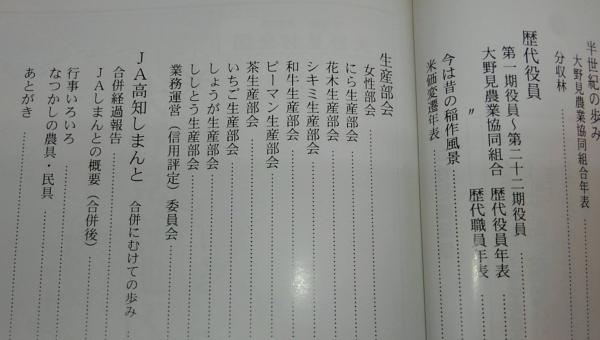 半世紀の歩み
大野見農業協同組合年表
分収林
歴代役員
第一期役員～第二十二期役員
大野見農業協同組合 歴代役員年表
〃 歴代職員年表
今は昔の稲作風景
米価変遷年表
生産部会
女性部会
にら生産部会
花木生産部会
シキミ生産部会
和牛生産部会
ピーマン生産部会
茶生産部会
いちご生産部会
しょうが生産部会
ししとう生産部会
業務運営（信用評定）委員会
ＪＡ高知しまんと 合併にむけての歩み
合併経過報告
ＪＡしまんとの概要（合併後）
行事いろいろ
なつかしの農具・民具
あとがき